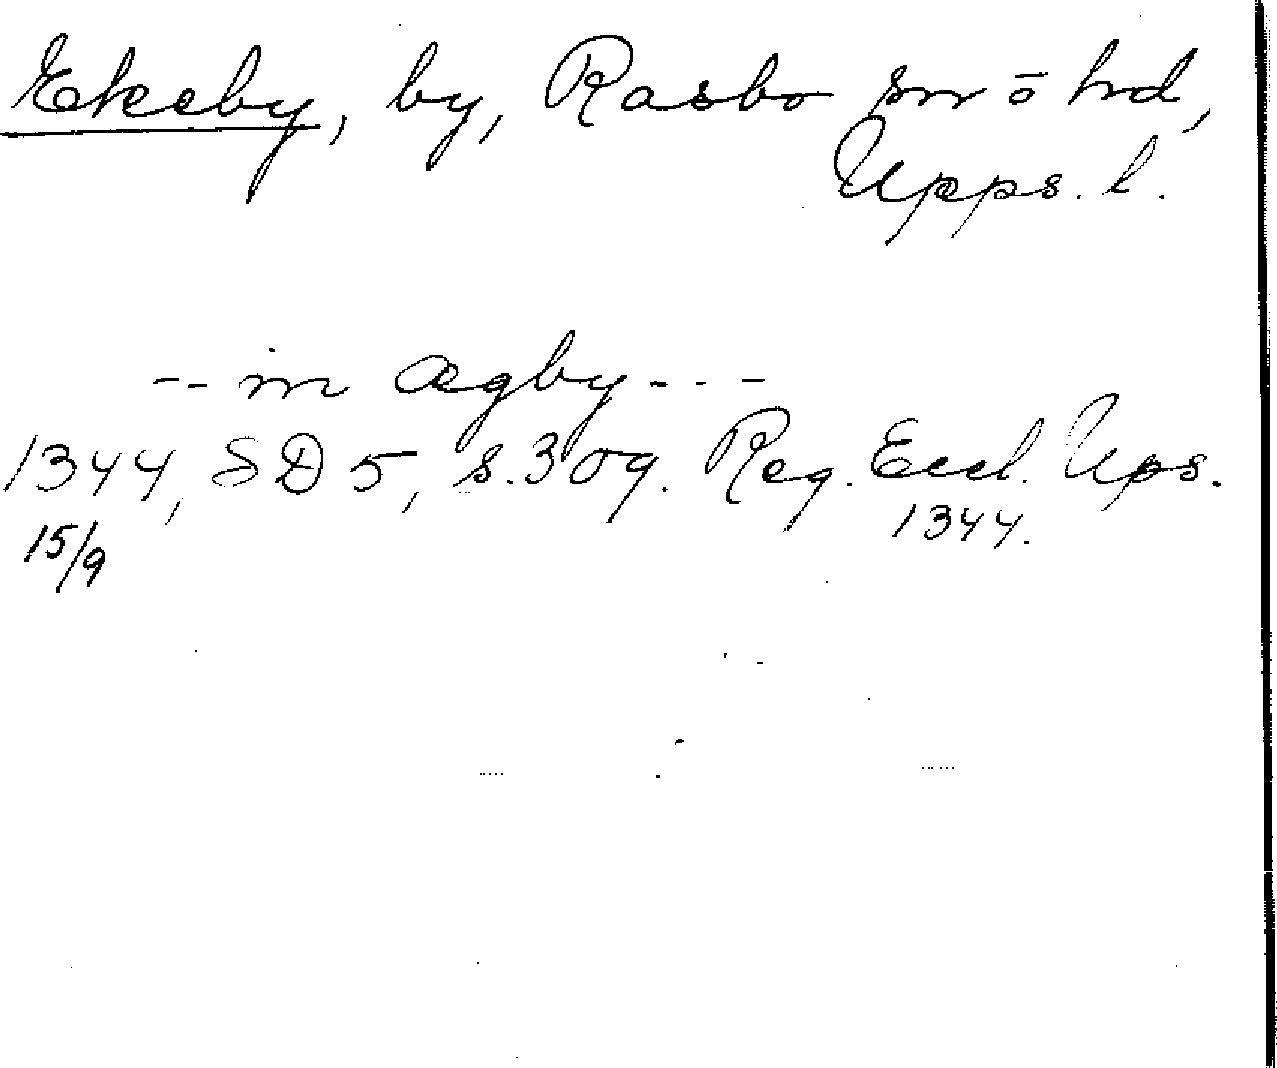 Ekeby, by, Rasbo sn o hd,
Upps. l.
-- in ægby - - -
1344, SD 5, s. 309. Reg. Eccl. Ups.
15/9 1344.